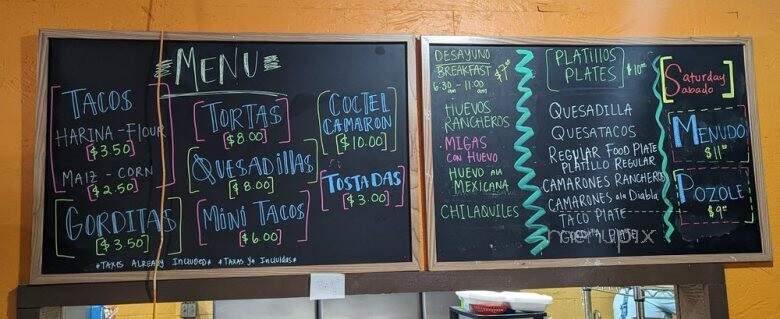 MENU
TACOS
HARINA - FLOUR
$3.50
MAIZ - CORN
$2.50
GORDITAS
$3.50
TORTAS
$8.00
QUESADILLAS
$8.00
MINI TACOS
$6.00
COCTEL
CAMARON
$10.00
TOSTADAS
$3.00
*TAXES ALREADY INCLUDED* *TAXAS YA INCLUIDAS*
DESAYUNO
BREAKFAST
6:30 am - 11:00 am
HUEVOS
RANCHEROS
MIGAS
CON HUEVO
HUEVO ala
MEXICANA
CHILAQUILES
PLATILLOS
PLATES
$10.00
QUESADILLA
QUESATACOS
REGULAR FOOD PLATE
PLATILLO REGULAR
CAMARONES RANCHEROS
CAMARONES ala Diabla
TACO PLATE
PLATE
menupix
Saturday
Sabado
MENUDO
$11.00
POZOLE
$9.00